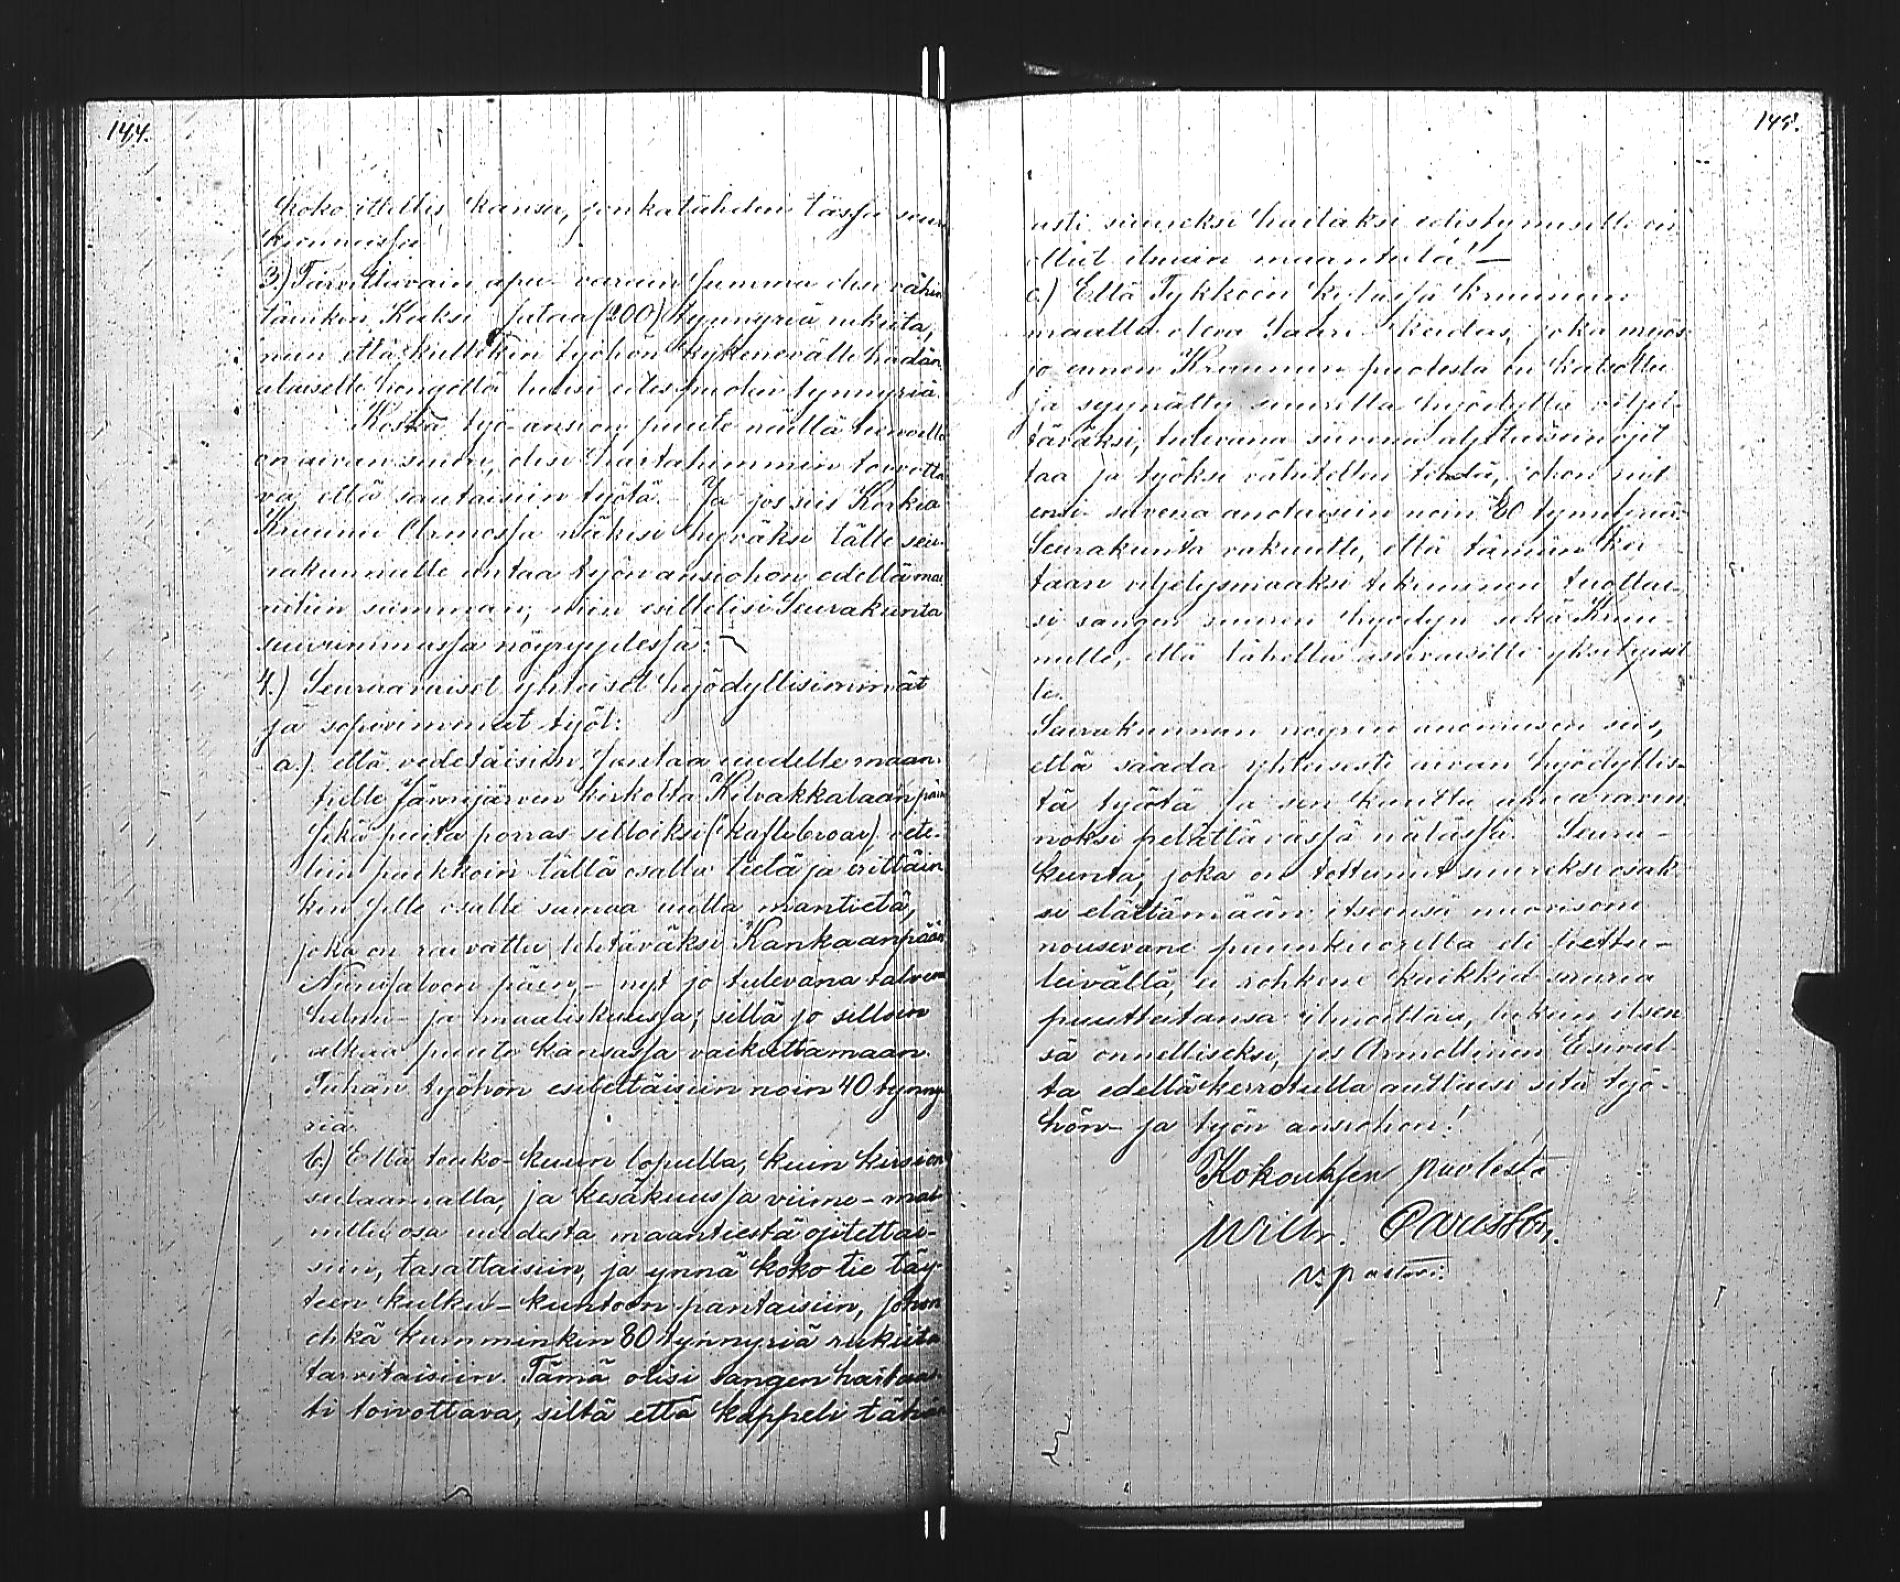 144.
koko ittellis kansa, jonkatähden tässä seura
kunnassa
3.) Tarvittavain apu-varain summa olisi vähin
täinkin Kaksi sataa (200) tynnyriä rukiita,
niin että kullekin työhön kykenevälle hädän
alaiselle hengellä tulisi edes puolen tynnyriä.
Koska työ-ansion puute näillä tienoilla
on aivan suuri, olisi hartahimmin toivotta
va, että saataisiin työtä. Ja jos siis Korkia
Kruunu Armossa näkisi hyväksi tälle seu-
rakunnalle antaa työn ansiohon edellämai
nitun summan, niin esittelisi Seurakunta
suurimmassa nöyryydessä:
4.) Seuraavaiset yhteiset hyödyllisimmät
ja sopivimmat työt:
a.) että vedetäisiin santaa uudelle maan-
tielle Jämijärven kirkolta Kilvakkalaan päin
sekä puita porras selloiksi (kaflebroar) vete-
liin paikkoin tällä osalla tietä ja erittäin
kin sille osalle samaa uutta mantietä,
joka on raivattu tehtäväksi Kankaanpään
Niinisaloon päin,- nyt jo tulevana talvena
helmi- ja maaliskuussa; sillä jo silloin
alkaa puute kansassa vaikuttamaan.
Tähän työhön esiteltäisiin noin 40 tynny-
riä.
b.) Että touko-kuun lopulla, kuin kirsi on
sulaamalla, ja kesäkuussa viime-mai
nittu osa uudesta maantiestä ojitettai-
siin, tasattaisiin, ja ynnä koko tie täy-
teen kulku-kuntoon pantaisiin, johon
ehkä kumminkin 80 tynnyriä rukiita
tarvitaisiin. Tämä olisi sangen hartaas-
ti toivottava, siltä että kappeli tähän
145.
asti suureksi haitaksi edistymiselle on
ollut ilman maantietä!
c.) Että Tykköön kylässä Kruunun
maalla oleva Saari keidas, joka myös
jo ennen Kruunun puolesta on katsottu
ja syynätty suurella hyödyllä viljel-
täväksi, tulevana suvena aljettaisiin ojit
taa ja työksi vähitellen tehdä, johon nyt
ensi suvena anotaisiin noin 80 tynnyriä.
Seurakunta vakuutti, että tämän kei
taan viljelysmaaksi tekeminen tuottai-
si sangen suuren hyödyn sekä Kruu-
nulle, että lähellä asuvaisille yksityisil
le.
Seurakunnan nöyrin anomisen siis,
että saada yhteisesti aivan hyödyllis-
tä työtä ja sen kautta apua varin
noksi pelättävässä nälässä. Seura-
kunta, joka on tottunut suureksi osak
si elättämään itsensä nuorisoni
nousevane puunkuorilla eli pettu-
leivällä, ei rohkene kaikkia suuria
puuttutansa ilmoittaa, lukein itsen
sä onnelliseksi, jos Armollinen Esival
ta edellä kerrotulla auttaisi sitä työ-
hön- ja työn ansiohon!
Kokouksen puolesta
v. pastori.